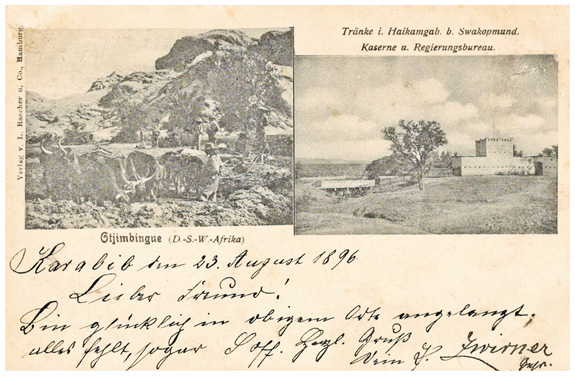 Tränke i. Haikamgab. b. Swakopmund.
Kaserne u. Regierungsbureau.
Verlag v. L. Rascher u. Co., Hamburg.
Otjimbingue (D.-S.-W.-Afrika)
Karabib den 23. August 1896
Lieber Freund!
Bin glücklich in obigem Orte angelangt.
alles fehlt, sogar Soff. Herzl. Gruß
Dein F. Zwirner